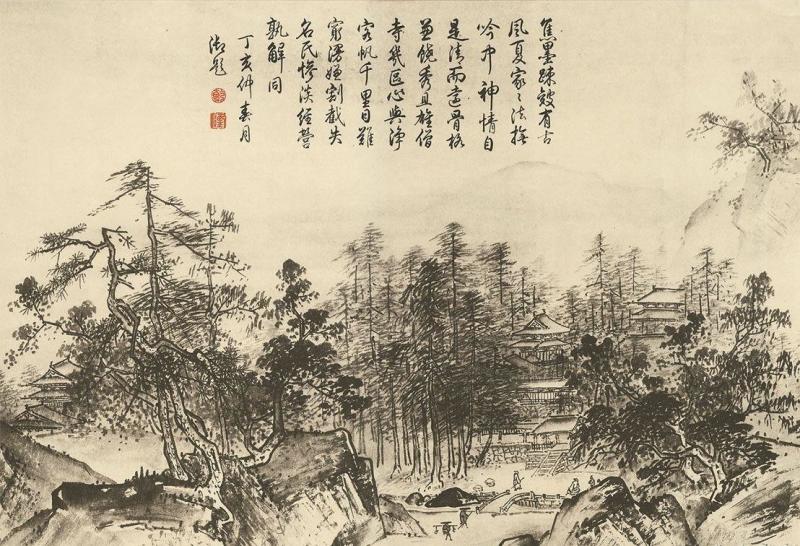 焦墨疎皴有古
風夏家〻法撫
吟中神情自
是清而遠骨格
兼饒秀且雄僧
寺幾區心與淨
客帆千里目難
窮漫嫌割截失
名氏慘淡經營
孰解同
丁亥仲春月
御題